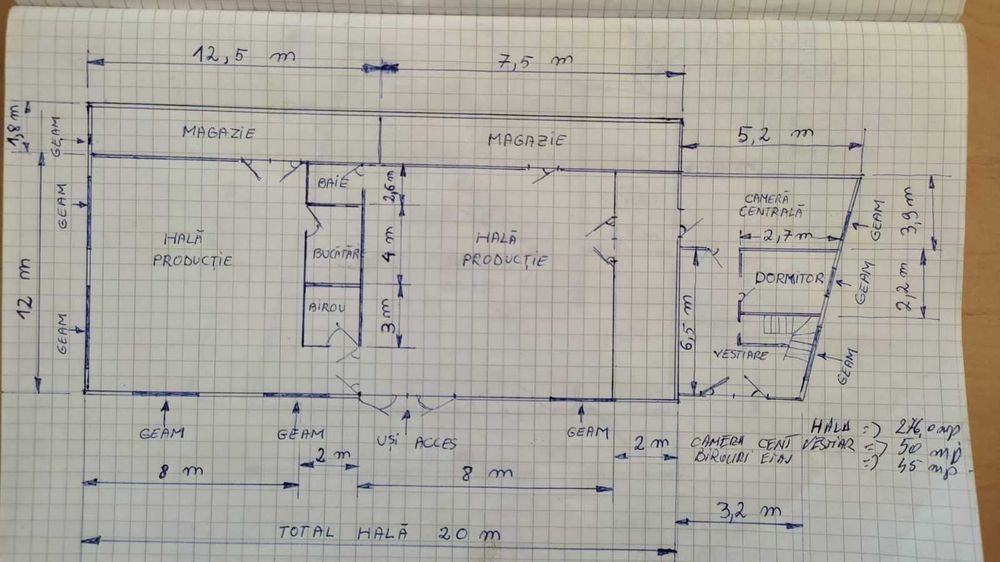 12,5 m
7,5 m
1,8 m
GEAM
MAGAZIE
MAGAZIE
5,2 m
BAIE
2,6 m
CAMERĂ
CENTRALĂ
GEAM
3,9 m
GEAM
HALĂ
PRODUCȚIE
BUCĂTĂR
4 m
HALĂ
PRODUCȚIE
2,7 m
12 m
DORMITOR
GEAM
2,2 m
GEAM
BIROU
3 m
6,5 m
VESTIARE
GEAM
GEAM
GEAM
UȘI ACCES
GEAM
2 m
HALA => 276,0 mp
CAMERA CENT VESTIAR => 50 mp
BIROURI ETAJ => 45 mp
8 m
2 m
8 m
3,2 m
TOTAL HALĂ 20 m